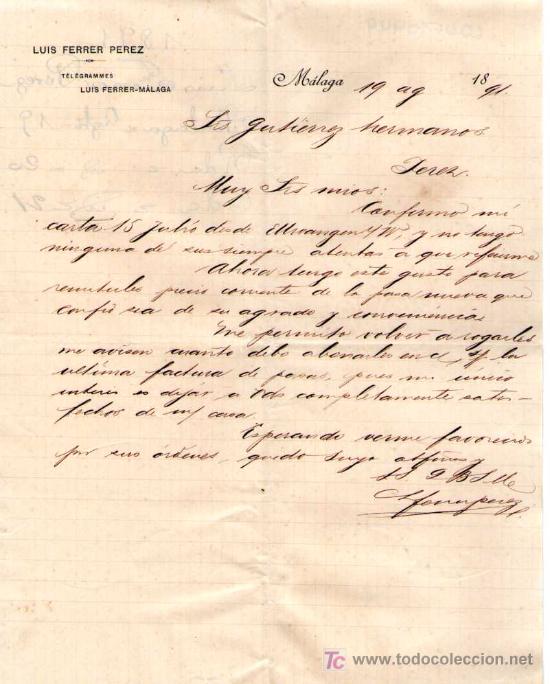 LUIS FERRER PEREZ
TÉLÉGRAMMES
LUIS FERRER-MÁLAGA
Málaga 19 ag 1891.
Srs Gutiérrez hermanos
Jerez
Muy Srs mios:
Confirmo mi
carta 15 Julio desde y no tengo
ninguna de sus siempre atentas a que referirme
Ahora tengo este gusto para
remitirles precio corriente de la pasa nueva que
confio sea de su agrado y conveniencias
Me permito volver a rogarles
me avisen cuanto debo abonarles en c/ y la
ultima factura de pasas, pues mi único
interes es dejar a Vds completamente satis-
fechos de m/ casa.
Esperando verme favorecido
por sus órdenes, quedo suyo
SS Q B S M
L Ferrer Perez
TC www.todocoleccion.net